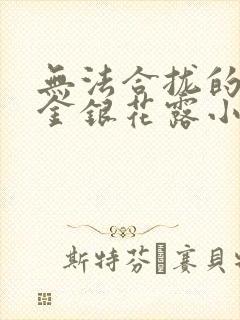 無法合拢的
金銀花露小
斯特芬·賽貝